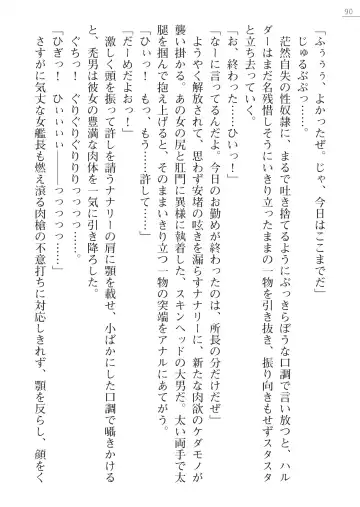 90
「ふぅぅぅ、よかったぜ。じゃ、今日はここまでだ」
じゅるぷぷっ……。
茫然自失の性奴隷に、まるで吐き捨てるようにぶっきらぼうな口調で言い放つと、ハル
ダーはまだ名残惜しそうにいきり立ったままの一物を引き抜き、振り向きもせずスタスタ
と立ち去っていく。
「お、終わった……ひいっ！」
「なーに言ってるんだよ。今日のお勤めが終わったのは、所長の分だけだぜ」
ようやく解放されて、思わず安堵の呟きを漏らすナナリーに、新たな肉欲のケダモノが
襲い掛かる。あの女の尻と肛門に異様に執着した、スキンヘッドの大男だ。太い両手で太
腿を掴んで抱え上げると、そのままいきり立つ一物の突端をアナルにあてがう。
「ひぃっ！　もっ、もう……許して……」
「だーめだよおっ！」
激しく頭を振って許しを請うナナリーの肩に顎を載せ、小ばかにした口調で囁きかける
と、禿男は彼女の豊満な肉体を一気に引き降ろした。
ぐちっ！　ぐりぐりぐりりっっっ……。
「ひぎっ！　ひぃぃぃぃ――っっっっっ……」
さすがに気丈な女艦長も燃え滾る肉槍の不意打ちに対応しきれず、顎を反らし、顔をく